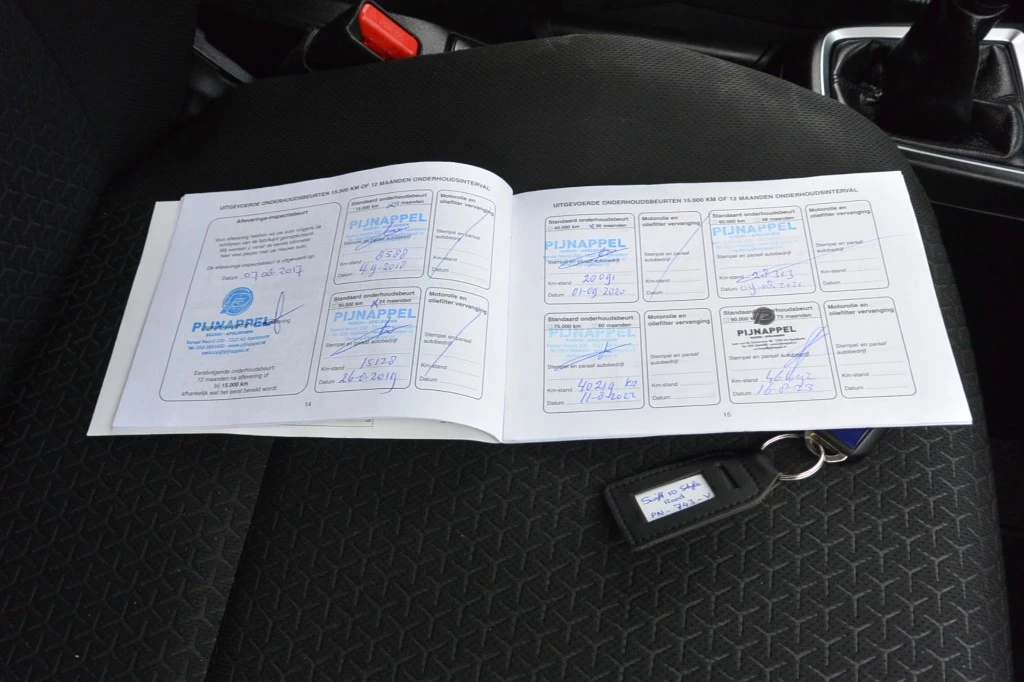 UITGEVOERDE ONDERHOUDSBEURTEN 15.000 KM OF 12 MAANDEN ONDERHOUDSINTERVAL
Afleverings-inspectiebeurt
Voor aflevering hebben wij uw auto volgens de
voorschrijven van de fabrikant geïnspecteerd.
Wij wensen u vanaf de eerste kilometer
heel veel plezier met uw nieuwe auto.
De afleverings-inspectiebeurt is uitgevoerd op:
Datum 07-08-2017
PIJNAPPEL
Kanaal Noord
www.pijnappel.nl
verkoop@pijnappel.nl
Eerstvolgende onderhoudsbeurt
12 maanden na aflevering of
bij 15.000 km
afhankelijk wat het eerst bereikt wordt!
Standaard onderhoudsbeurt
15.000 km 12 maanden
PIJNAPPEL
Stempel en paraaf
autobedrijf
Km-stand 8588
Datum 4-9-2018
Motorolie en
oliefilter vervanging
Stempel en paraaf
autobedrijf
Km-stand
Datum
Standaard onderhoudsbeurt
30.000 km 24 maanden
PIJNAPPEL
Stempel en paraaf
autobedrijf
Km-stand 15128
Datum 26-8-2019
Motorolie en
oliefilter vervanging
Stempel en paraaf
autobedrijf
Km-stand
Datum
14
UITGEVOERDE ONDERHOUDSBEURTEN 15.000 KM OF 12 MAANDEN ONDERHOUDSINTERVAL
Standaard onderhoudsbeurt
45.000 km 36 maanden
PIJNAPPEL
Stempel en paraaf
autobedrijf
Km-stand 20091
Datum 01-09-2020
Motorolie en
oliefilter vervanging
Stempel en paraaf
autobedrijf
Km-stand
Datum
Standaard onderhoudsbeurt
60.000 km 48 maanden
PIJNAPPEL
Stempel en paraaf
autobedrijf
Km-stand
Datum
Motorolie en
oliefilter vervanging
Stempel en paraaf
autobedrijf
Km-stand
Datum
Standaard onderhoudsbeurt
75.000 km 60 maanden
PIJNAPPEL
Stempel en paraaf
autobedrijf
Km-stand 40219 km
Datum 11-8-2022
Motorolie en
oliefilter vervanging
Stempel en paraaf
autobedrijf
Km-stand
Datum
Standaard onderhoudsbeurt
90.000 km 72 maanden
PIJNAPPEL
Stempel en paraaf
autobedrijf
Km-stand
Datum 16-8-23
Motorolie en
oliefilter vervanging
Stempel en paraaf
autobedrijf
Km-stand
Datum
15
Swift 10 Style
Rood
PN-743-V